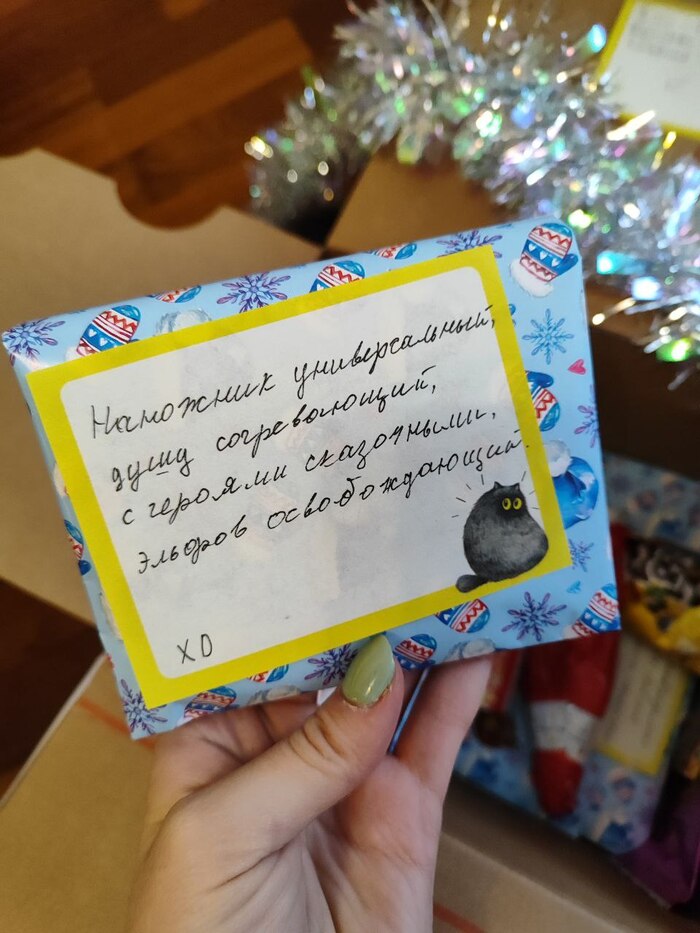 Наножник универсальный,
душу согревающий,
с героями сказочными,
эльфов освобождающий.
ХО